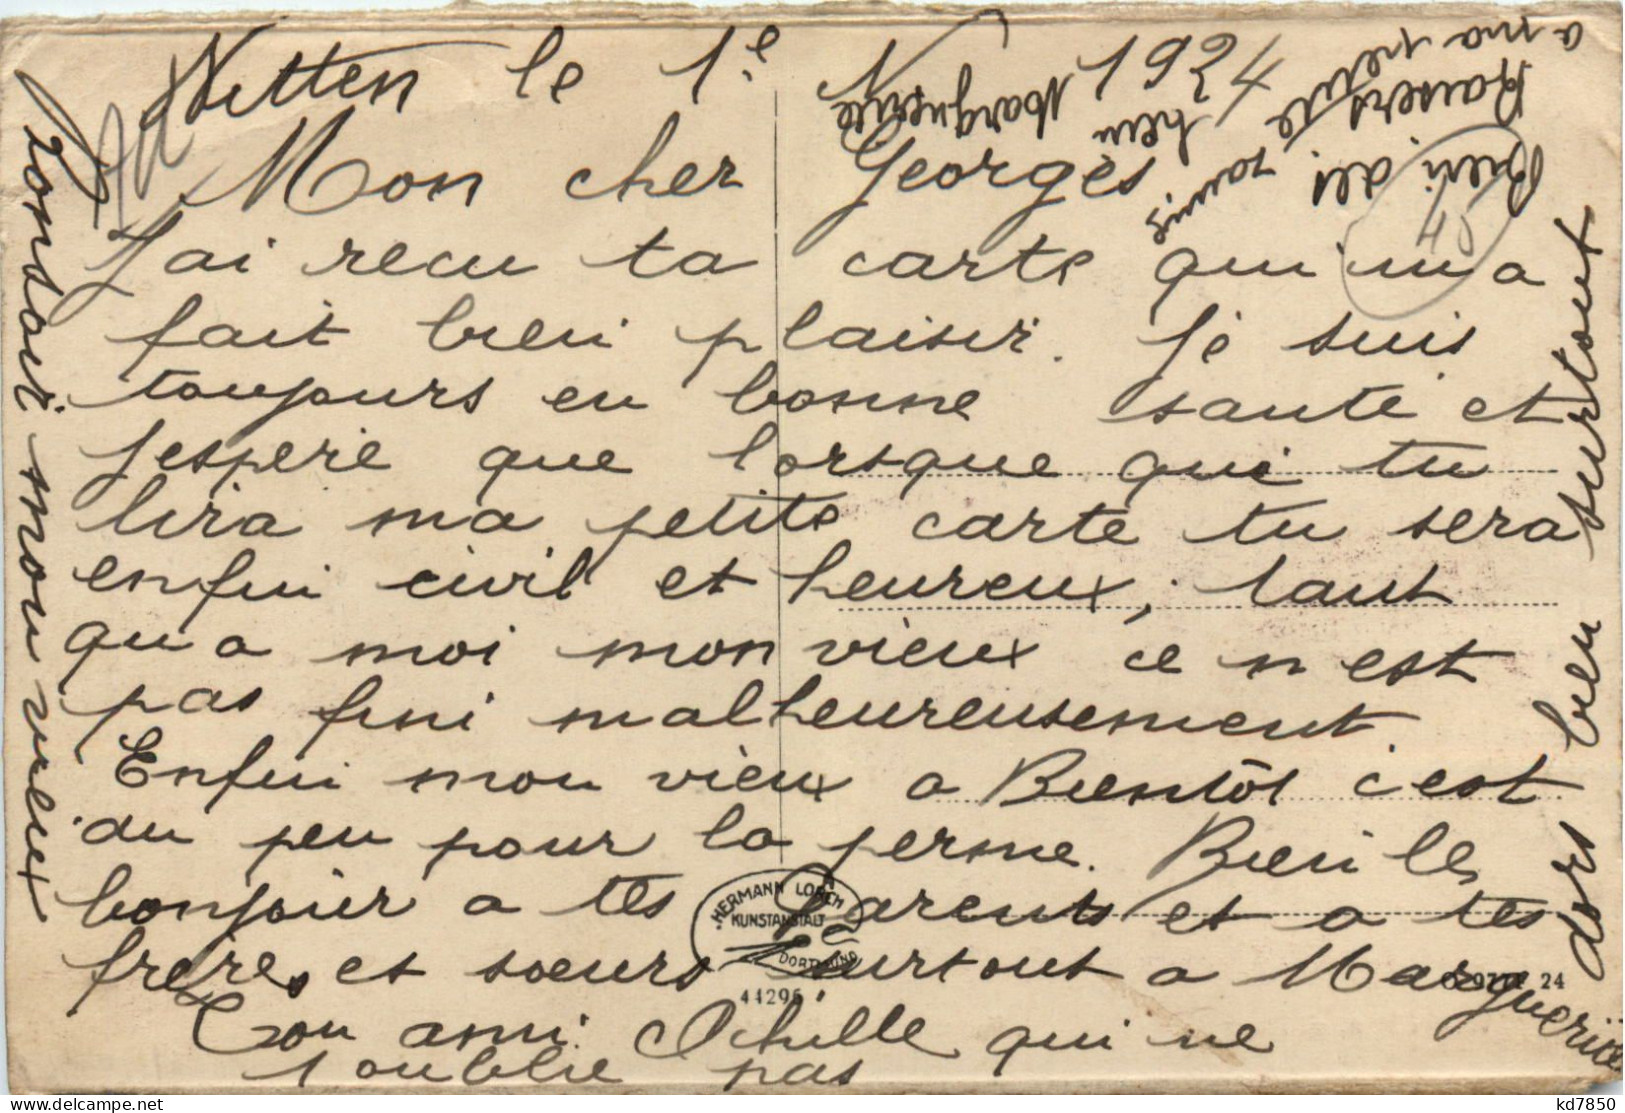 Witten le 1e N 1924
Mon cher Georges,
J'ai recu ta carte qui m'a
fait bien plaisir. Je suis
toujours en bonne santé et
j'espère que lorsque qui tu
lira ma petite carte tu sera
enfin civil et heureux, tant
qu'a moi mon vieux ce n'est
pas fini malheureusement.
Enfin mon vieux a Bientôt c'est
du peu pour la perme. Bien le
bonjour a tes parents et a tes
frères et soeurs surtout a Marguerite
Ton ami Achille qui ne
t'oublie pas
dors bien surtout
bonsoir mon vieux
Bien des
Baisers
a ma petite
Marguerite
HERMANN LORCH
KUNSTANSTALT
DORTMUND
44296
24
kd7850